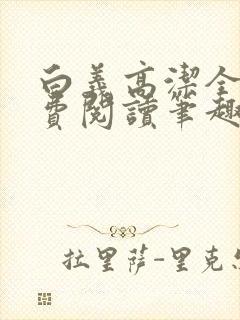 白義高潔全
費閱讀筆趣
拉里薩-里克